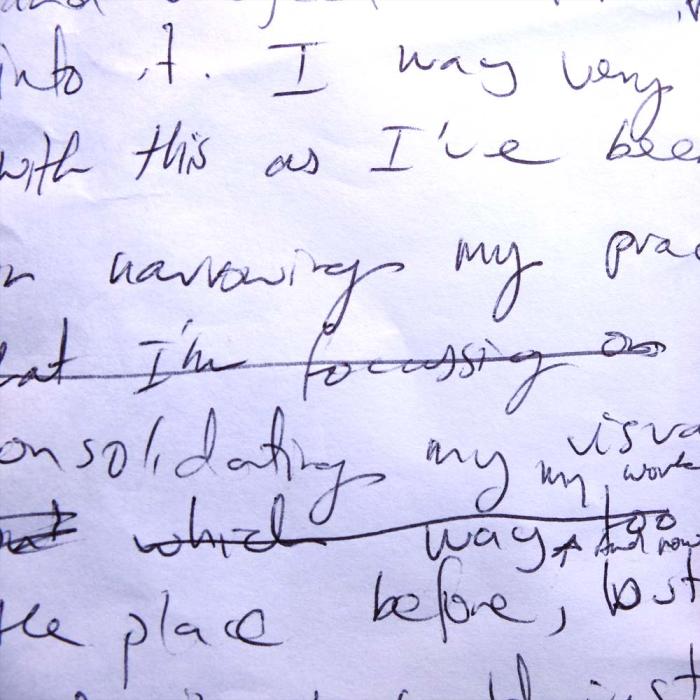 into it. I was very
with this as I've been
narrowing my prac
at I'm focussing on
onsolidating my visua
my work
which was too
and now
the place before, but